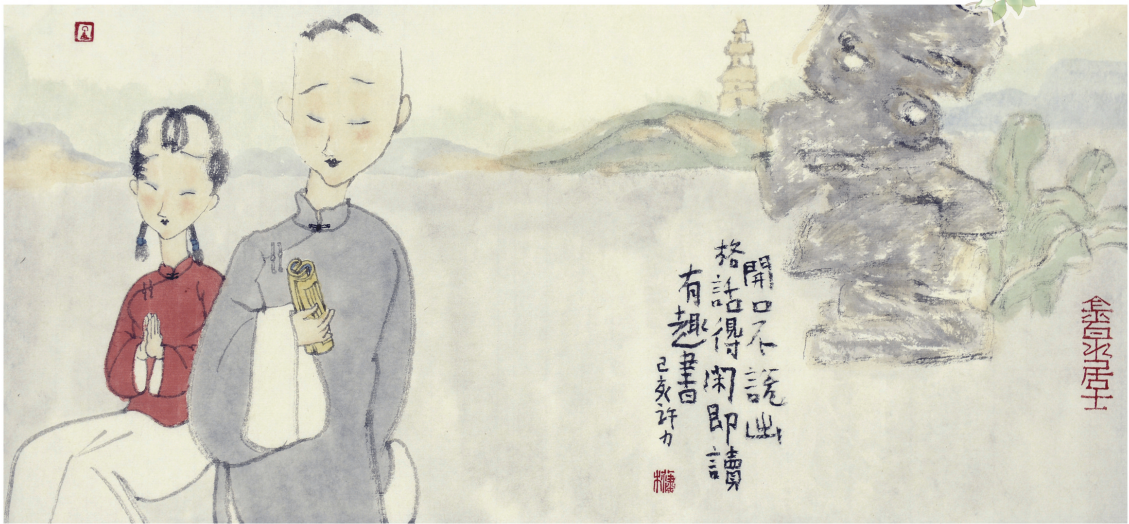 開口不說出
格話得閑即讀
有趣書
己亥許力
居士